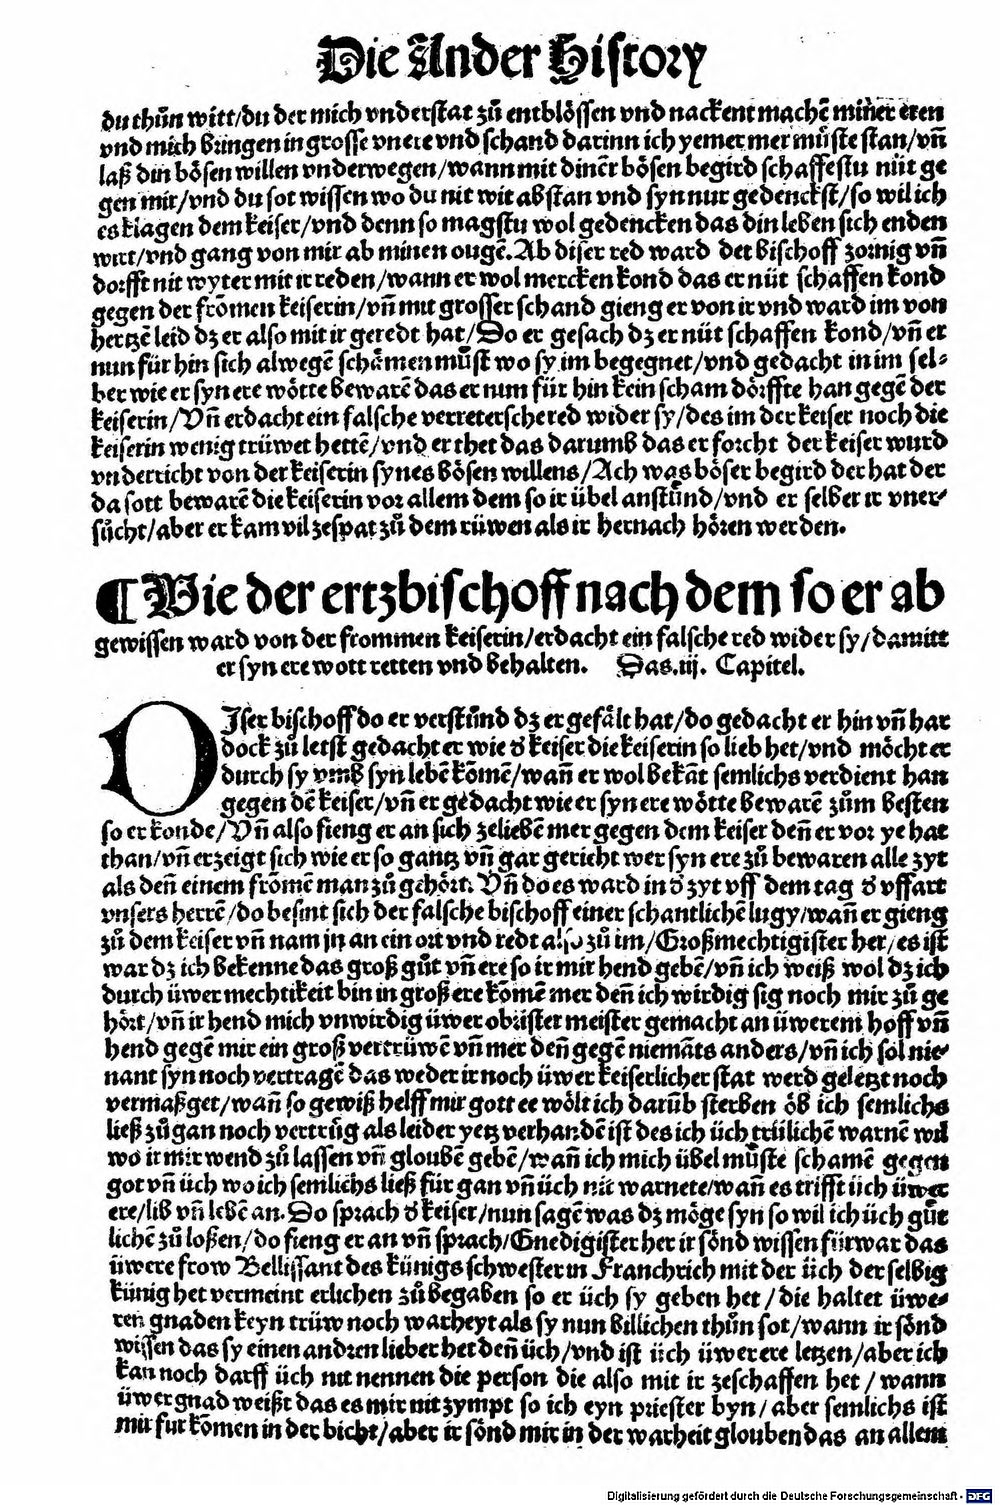 Die Ander History
du thůn witt/du der mich vnderstat zů entblössen vnd nackent machē miner eren
vnd mich bringen in grosse vnere vnd schand darinn ich yemer mer můste stan/vñ
laß din bösen willen vnderwegen/wann mit diner bösen begird schaffestu nüt ge
gen mir/vnd du sot wissen wo du nit wit abstan vnd syn nur gedenckst/so wil ich
es klagen dem keiser/vnd denn so magstu wol gedencken das din leben sich enden
wirt/vnd gang von mir ab minen ougē. Ab diser red ward der bischoff zornig vñ
dorfft nit wyter mit ir reden/wann er wol mercken kond das er nüt schaffen kond
gegen der frömen keiserin/vñ mit grosser schand gieng er von ir vnd ward im von
hertzē leid dz er also mit ir geredt hat/Do er gesach dz er nüt schaffen kond/vñ er
nun für hin sich alwegē schämen můst wo sy im begegnet/vnd gedacht in im sel⸗
ber wie er syn ere wötte bewarē das er num für hin kein scham dörffte han gegē der
keiserin/Vñ erdacht ein falsche verretersche red wider sy/des im der keiser noch die
keiserin wenig trüwet hettē/vnd er thet das darumb das er forcht der keiser wurd
vnderricht von der keiserin synes bösen willens/Ach was böser begird der hat der
da sott bewarē die keiserin vor allem dem so ir übel anstůnd/vnd er selber ir vner⸗
sůcht/aber er kam vil ze spat zů dem rüwen als ir hernach hören werden.
¶ Wie der ertzbischoff nach dem so er ab
gewissen ward von der frommen keiserin/erdacht ein falsche red wider sy/damitt
er syn ere wott retten vnd behalten. Das.iij. Capitel.
DJser bischoff do er verstůnd dz er gefält hat/do gedacht er hin vñ har
dock zů letst gedacht er wie d̕ keiser die keiserin so lieb het/vnd möcht er
durch sy vmb syn lebē kōmē/wañ er wol bekāt semlichs verdient han
gegen dē keiser/vñ er gedacht wie er syn ere wötte bewarē zům besten
so er konde/Vñ also fieng er an sich ze liebē mer gegen dem keiser deñ er vor ye hat
than/vñ erzeigt sich wie er so gantz vñ gar gericht wer syn ere zů bewaren alle zyt
als deñ einem frömē man zů gehört. Vñ do es ward in d̕ zyt vff dem tag d̕ vffart
vnsers herrē/do besint sich der falsche bischoff einer schantlichē lugy/wañ er gieng
zů dem keiser vñ nam jn an ein ort vnd redt also zů im/Großmechtigister her/es ist
war dz ich bekenne das groß gůt vñ ere so ir mir hend gebē/vñ ich weiß wol dz ich
durch üwer mechtikeit bin in groß ere kōmē mer deñ ich wirdig sig noch mir zů ge
hört/vñ ir hend mich vnwirdig üwer obrister meister gemacht an üwerem hoff vñ
hend gegē mir ein groß vertrüwē vñ mer deñ gegē niemāts anders/vñ ich sol nie⸗
nant syn noch vertragē das weder ir noch üwer keiserlicher stat werd geletzt noch
vermaßget/wañ so gewiß helff mir gott ee wölt ich darūb sterben öb ich semlichs
ließ zů gan noch vertrüg als leider yetz verhandē ist des ich üch trülichē warnē wil
wo ir mir wend zů lassen vñ gloubē gebē/wañ ich mich übel můste schamē gegen
got vñ üch wo ich semlichs ließ für gan vñ üch nit warnete/wañ es trifft üch üwer
ere/lib vñ lebē an. Do sprach d̕ keiser/nun sagē was dz möge syn so wil ich üch güt
lichē zů loßen/do fieng er an vñ sprach/Gnedigister her ir sönd wissen fürwar das
üwere frow Bellissant des künigs schwester in Franckrich mit der üch der selbig
künig het vermeint erlichen zů begaben so er üch sy geben het/die haltet üwe⸗
ren gnaden keyn trüw noch warheyt als sy nun billichen thůn sot/wann ir sönd
wissen das sy einen andren lieber het deñ üch/vnd ist üch üwer ere letzen/aber ich
kan noch darff üch nit nennen die person die also mit ir ze schaffen het/wann
üwer gnad weißt das es mir nit zympt so ich eyn priester byn/aber semlichs ist
mir fur kōmen in der bicht/aber ir sönd mir in der warheit glouben das an allem
Digitalisierung gefördert durch die Deutsche Forschungsgemeinschaft - DFG